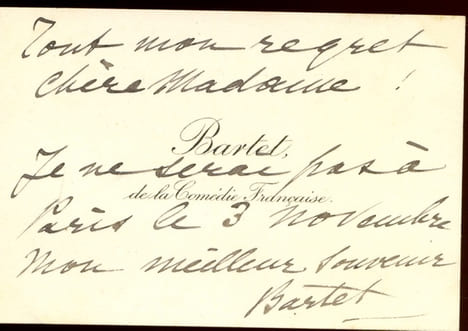 Tout mon regret
chère Madame !
Bartet,
Je ne serai pas à
de la Comédie Française.
Paris le 3 novembre
Mon meilleur souvenir
Bartet